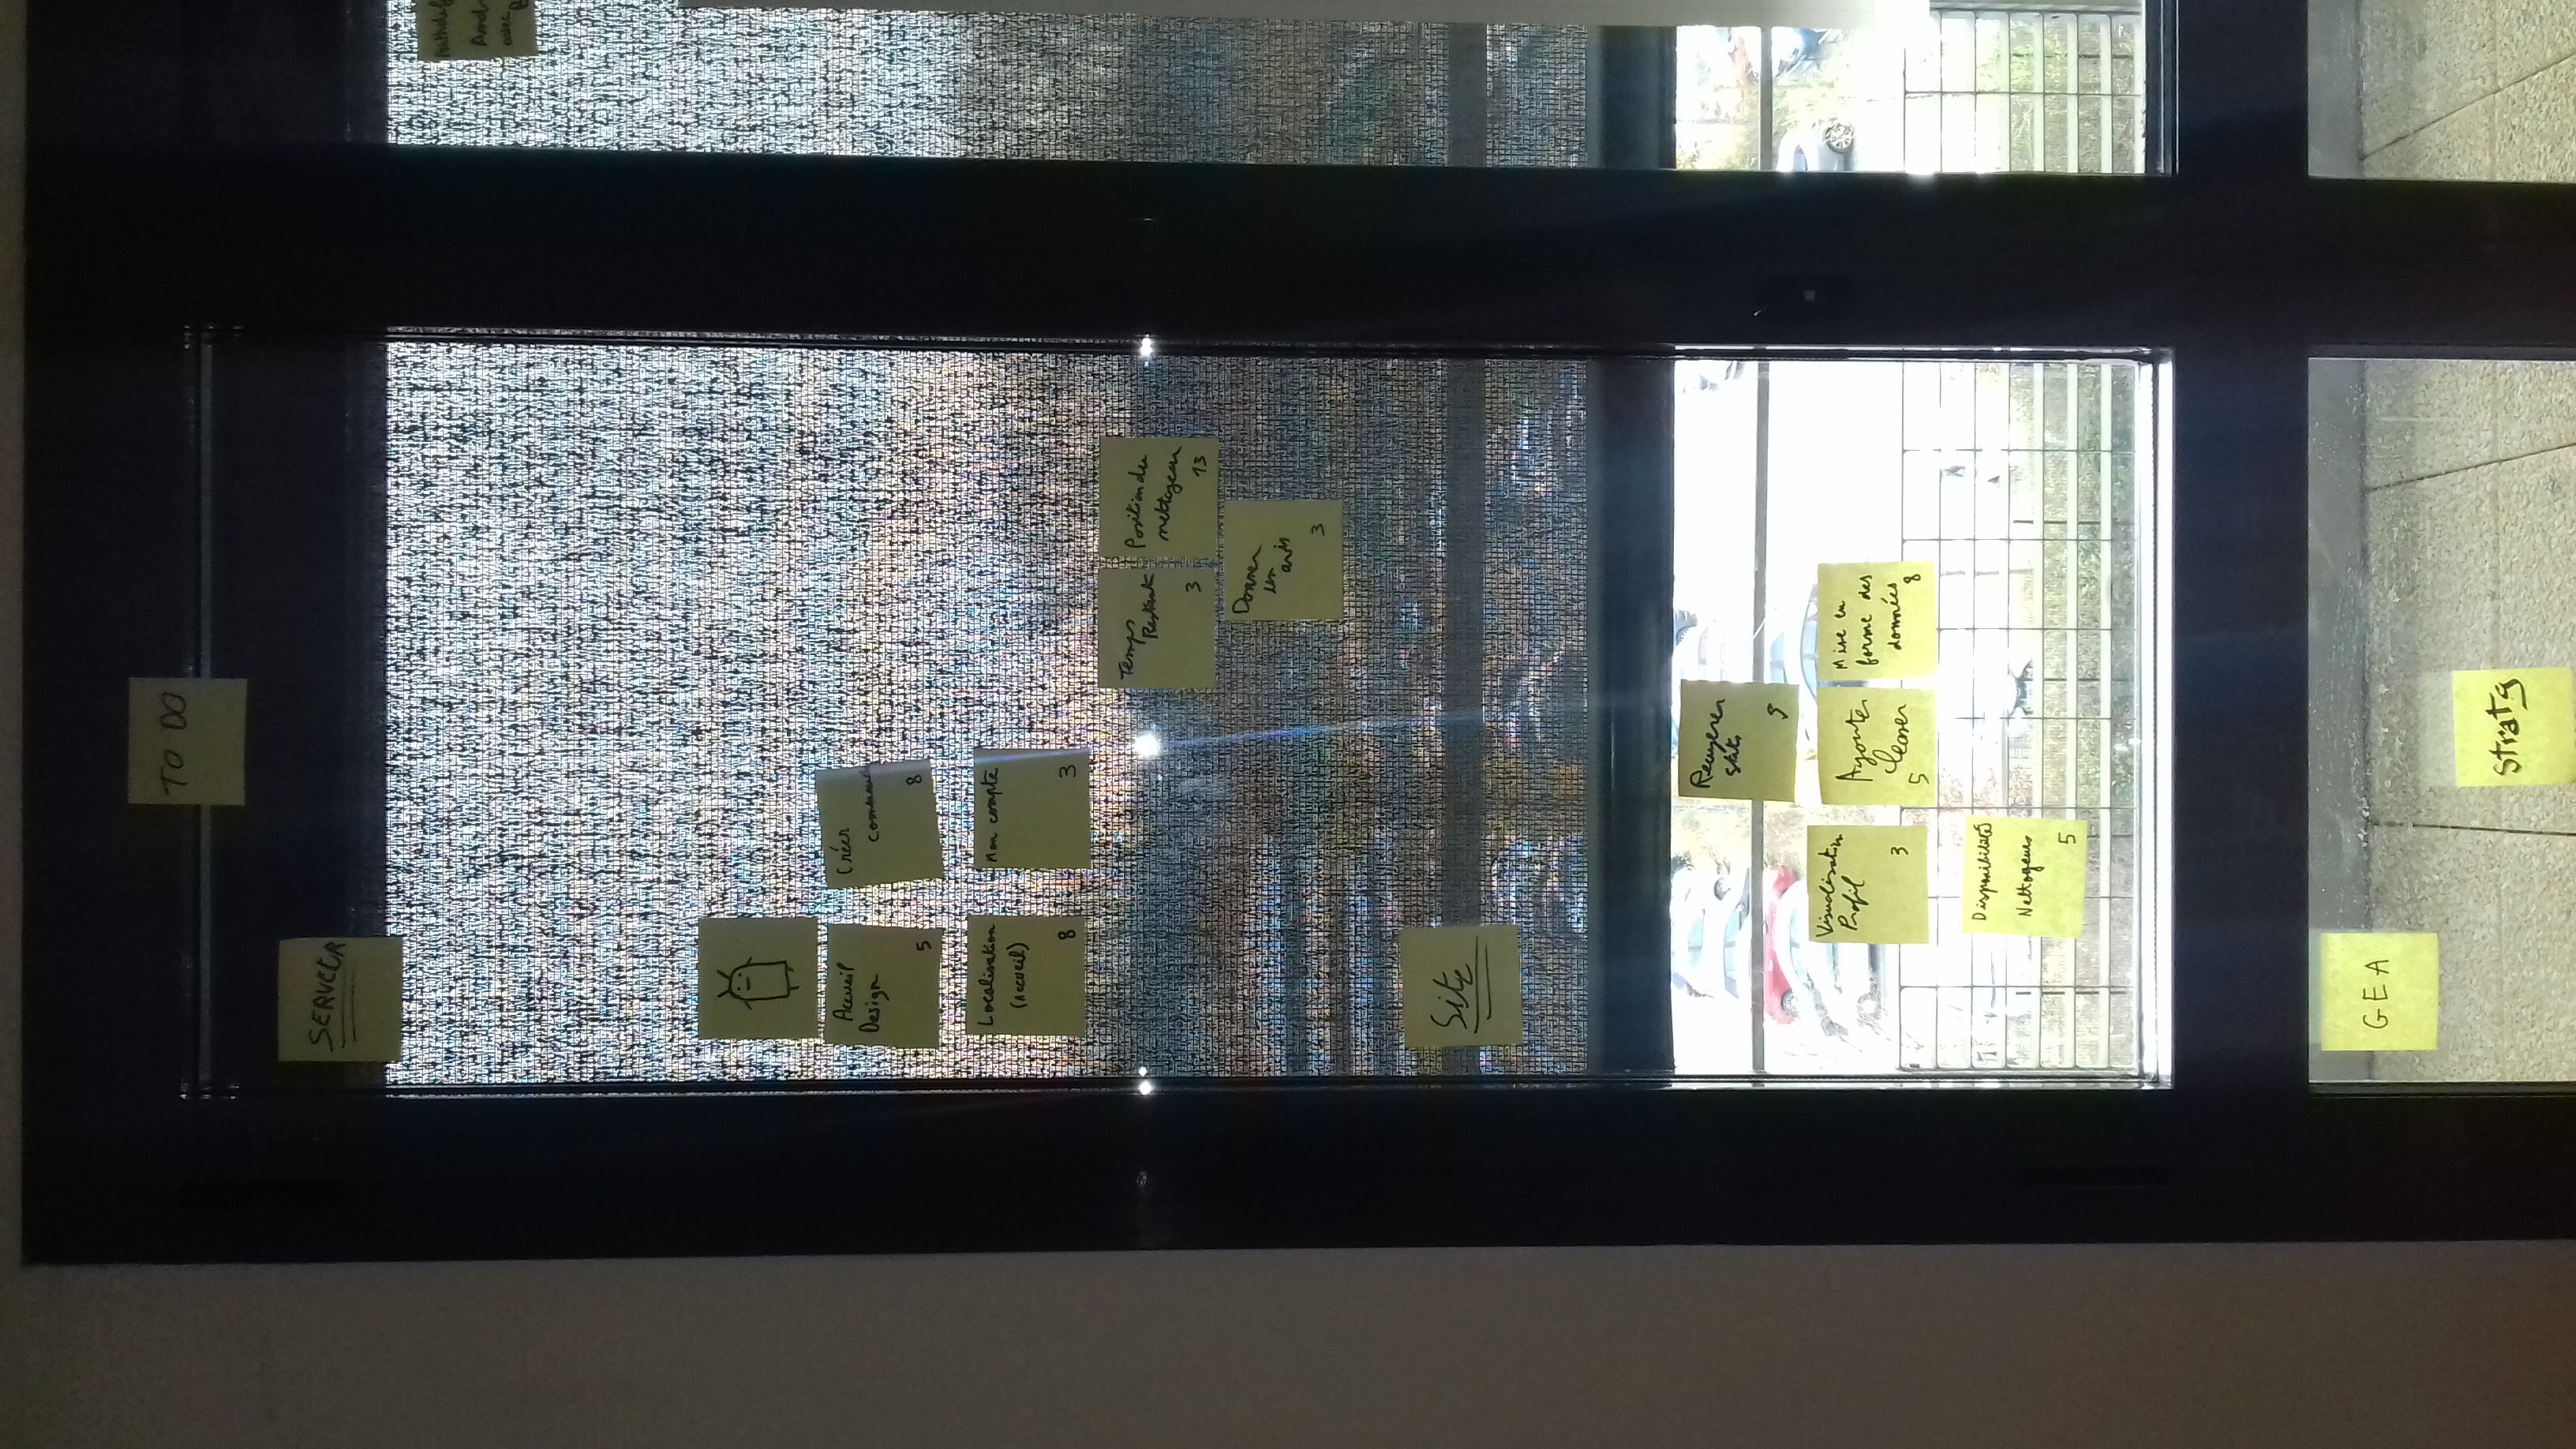 TO DO
SERVEUR
Accueil
Design
5
Créer
8
Localisation
(Accueil)
8
Mon compte
3
Temps
Restant
3
Position du
nettoyeur
13
Donner
un
avis
3
Site
Recuperer
stats
Visualisation
Profil
3
Ajouter
5
Mise en
forme des
données
8
Disponibilité
Nettoyeurs
5
GEA
Stratg